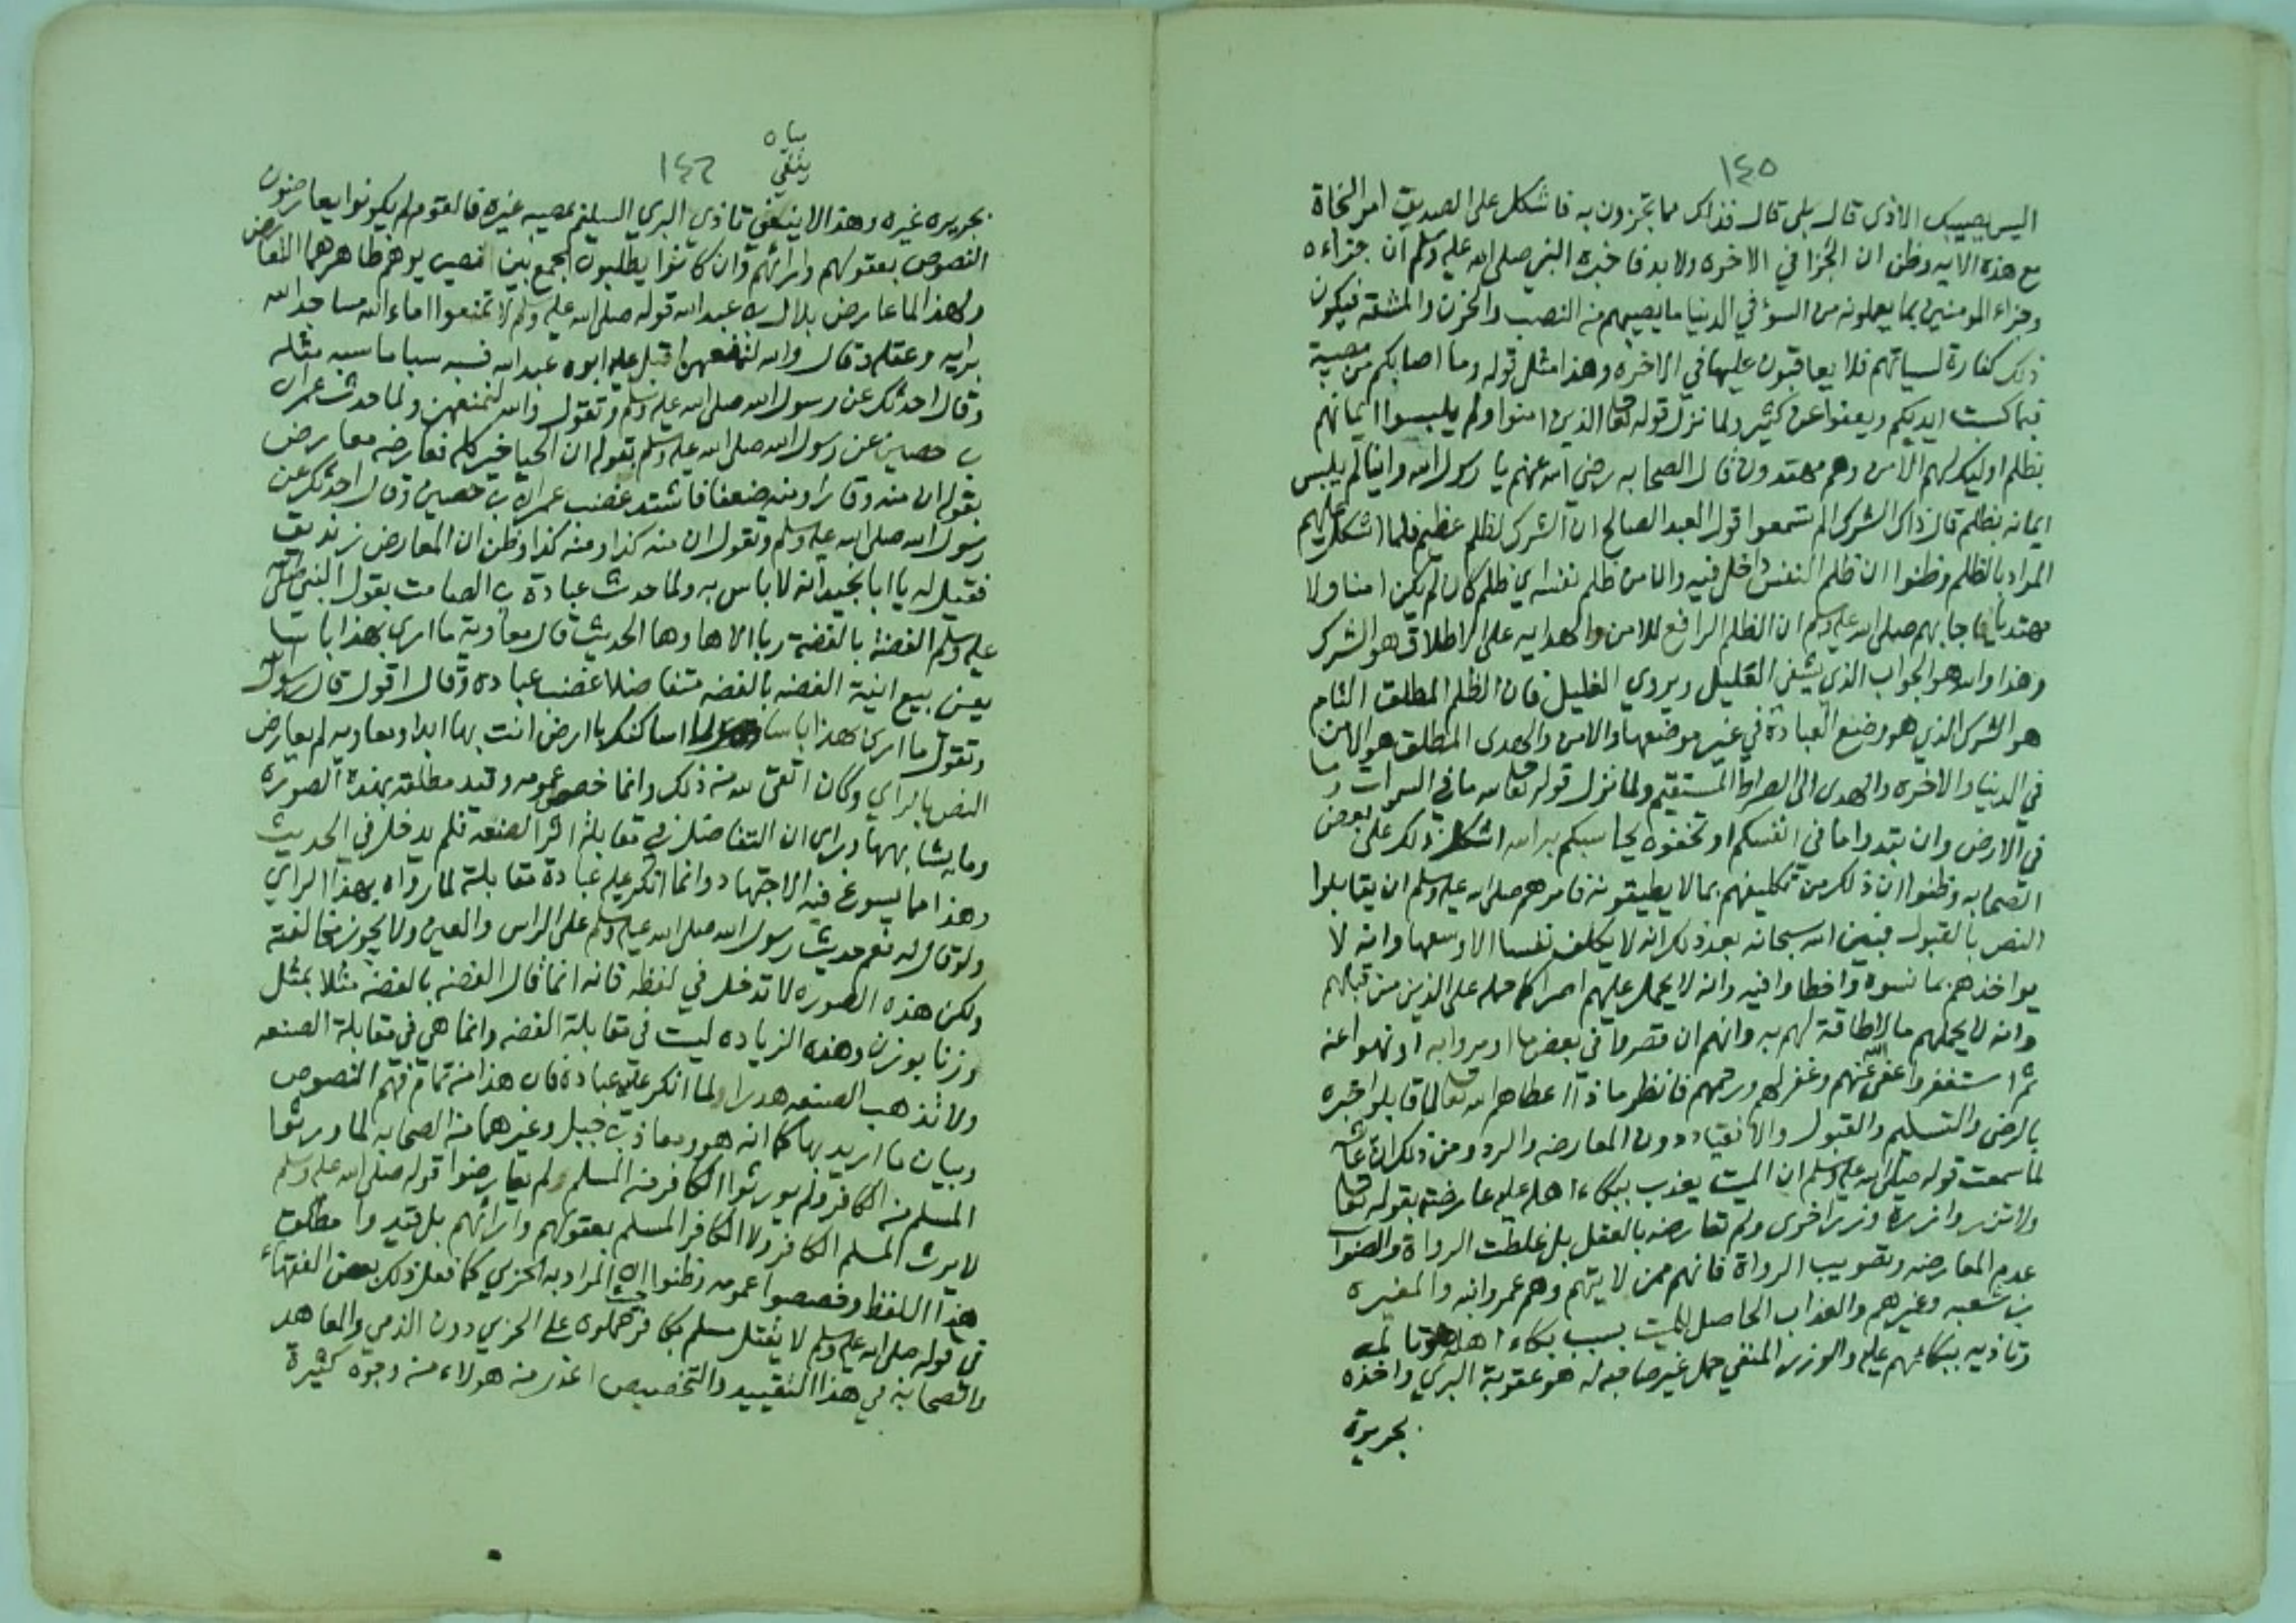 ١٤٥
اليس يصيبك الاذى قال بلى قال فذاك مما تجزون به فاشكل على الصديق امر النجاة
مع هذه الايه وظن ان الجزا في الاخره ولا بد فاخبره النبي صلى الله عليه وسلم ان جزاءه
وجزاء المومنين بما يعملونه من السؤ في الدنيا ما يصيبهم من النصب والحزن والمشقه فيكون
ذلك كفارة لسياتهم فلا يعاقبون عليها في الاخره وهذا مثل قوله وما اصابكم من مصيبة
فبما كسبت ايديكم ويعفوا عن كثير ولما نزل قوله تعا الذين امنوا ولم يلبسوا ايمانهم
بظلم اوليك لهم الامن وهم مهتدون قال الصحابه رضي الله عنهم يا رسول الله واينا لم يلبس
ايمانه بظلم قال ذاك الشرك الم تسمعوا قول العبد الصالح ان الشرك لظلم عظيم فلما اشكل عليهم
المراد بالظلم وظنوا ان ظلم النفس داخل فيه وان من ظلم نفسه اي ظلم كان لم يكن امنا ولا
مهتديا فاجابهم صلى الله عليه وسلم ان الظلم الرافع للامن والهدايه على الاطلاق هو الشرك
وهذا والله هو الجواب الذي يشفي العليل ويروي الغليل فان الظلم المطلق التام
هو الشرك الذي هو وضع العبادة في غير موضعها والامن والهدى المطلق هو الامن
في الدنيا والاخره والهدى الى الصراط المستقيم ولما نزل قوله تعا لله ما في السموات وما
في الارض وان تبدوا ما في انفسكم او تخفوه يحاسبكم به الله اشكل ذلك على بعض
الصحابه وظنوا ان ذلك من تكليفهم بما لا يطيقونه فامرهم صلى الله عليه وسلم ان يقابلوا
النص بالقبول فبين الله سبحانه بعد ذلك انه لا يكلف نفسا الا وسعها وانه لا
يواخذهم بما نسوه واخطاوا فيه وانه لا يحمل عليهم اصرا كما حمله على الذين من قبلهم
وانه لا يحملهم ما لا طاقة لهم به وانهم ان قصروا في بعض ما امروا به او نهوا عنه
ثم استغفروا عفى الله عنهم وغفر لهم ورحمهم فانظر ماذا اعطاهم الله تعا لما قابلوا خبره
بالرضى والتسليم والقبول والانقياد دون المعارضه والرد ومن ذلك ان عائشه
لما سمعت قوله صلى الله عليه وسلم ان الميت يعذب ببكاء اهله عليه عارضته بقوله تعا
ولا تزر وازرة وزر اخرى ولم تعارضه بالعقل بل غلطت الرواة والصواب
عدم المعارضه وتصويب الرواة فانهم ممن لا يتهم وهم عمر وابنه والمغيره
بن شعبه وغيرهم والعذاب الحاصل للميت بسبب بكاء اهله هو تالمه
وتاذيه ببكائهم عليه والوزر المنفي حمل غير صاحبه له هو عقوبة البري واخذه
بجريرة
بيا ه
ينفي
١٤٦
بجريره غيره وهذا لا ينفي تاذي البري السليم بمصيبه غيره فالقوم لم يكونوا يعارضون
النصوص بعقولهم وارائهم وان كانوا يطلبون الجمع بين نصين يوهم ظاهرهما التعارض
ولهذا لما عارض بلال بن عبد الله قوله صلى الله عليه وسلم لا تمنعوا اماء الله مساجد الله
برايه وعقله وقال والله لنمنعهن اقبل عليه ابوه عبد الله فسبه سبا ما سبه مثله
وقال احدثك عن رسول الله صلى الله عليه وسلم وتقول والله لنمنعهن ولما حدث عمران
بن حصين عن رسول الله صلى الله عليه وسلم بقوله ان الحيا خير كله فعارضه معارض
بقوله ان منه وقارا ومنه ضعفا فاشتد غضب عمران بن حصين وقال احدثك عن
رسول الله صلى الله عليه وسلم وتقول ان منه كذا ومنه كذا وظن ان المعارض زنديق
فقيل له يا ابا نجيد انه لا باس به ولما حدث عبادة بن الصامت بقول النبي صلى الله
عليه وسلم الفضة بالفضة ربا الا ها وها الحديث قال معاوية ما ارى بهذا باسا
يعني بيع انية الفضه بالفضه متفاضلا غضب عبادة وقال اقول قال رسول الله
وتقول ما ارى بهذا باسا والله لا اساكنك بارض انت بها ابدا ومعاويه لم يعارض
النص بالراي وكان اتقى لله من ذلك وانما خصص عمومه وقيد مطلقه بهذه الصوره
وما يشابهها وراى ان التفاضل في مقابلة اثر الصنعه فلم يدخل في الحديث
وهذا مما يسوغ فيه الاجتهاد وانما انكر عليه عبادة مقابلة لما رواه بهذا الراي
ولو قال له نعم حديث رسول الله صلى الله عليه وسلم على الراس والعين ولا يجوز مخالفته
ولكن هذه الصوره لا تدخل في لفظه فانه انما قال الفضه بالفضه مثلا بمثل
وزنا بوزن وهذه الزياده ليست في مقابلة الفضه وانما هي في مقابلة الصنعه
ولا تذهب الصنعه هدرا لما انكر عليه عبادة فان هذا من تمام فهم النصوص
وبيان ما اريد بها كما انه هو ومعاذ بن جبل وغيرهما من الصحابه لما ورثوا
المسلم من الكافر ولم يورثوا الكافر من المسلم ولم يعارضوا قوله صلى الله عليه وسلم
لا يرث المسلم الكافر ولا الكافر المسلم بعقولهم وارائهم بل قيدوا مطلق
هذا اللفظ وخصصوا عمومه وظنوا ان المراد به الحربي كما فعل ذلك بعض الفقهاء
في قوله صلى الله عليه وسلم لا يقتل مسلم بكافر حيث حملوه على الحربي دون الذمي والمعاهد
والصحابة في هذا التقييد والتخصيص اعذر من هولاء من وجوه كثيرة